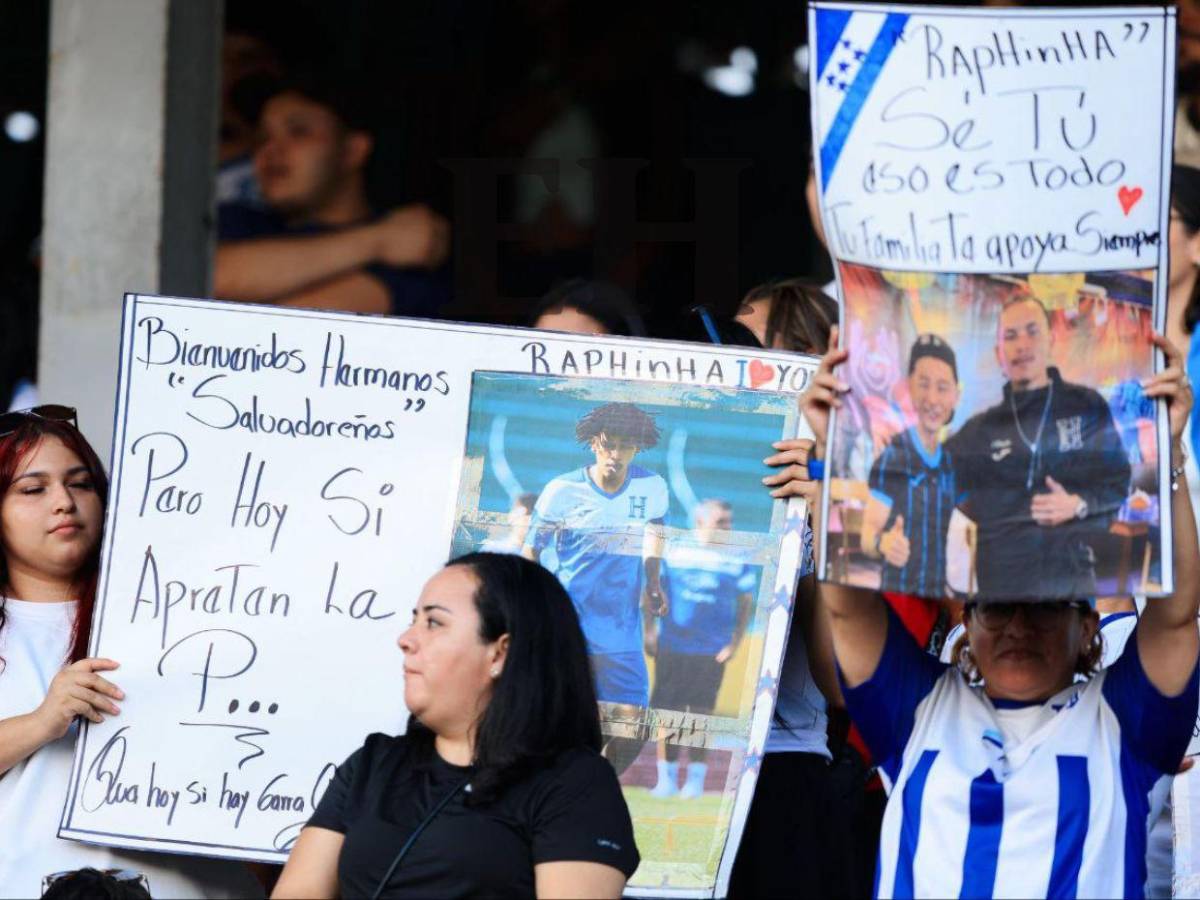 Bienvenidos Hermanos
"Salvadoreños"
Pero Hoy Si
Apratan La
P...
hoy si hay Garra
RAPHinHA I ❤ YOU
H
"RAPHinHA"
Sé Tú
eso es Todo
Tu Familia Ta apoya Siempre
H
EH